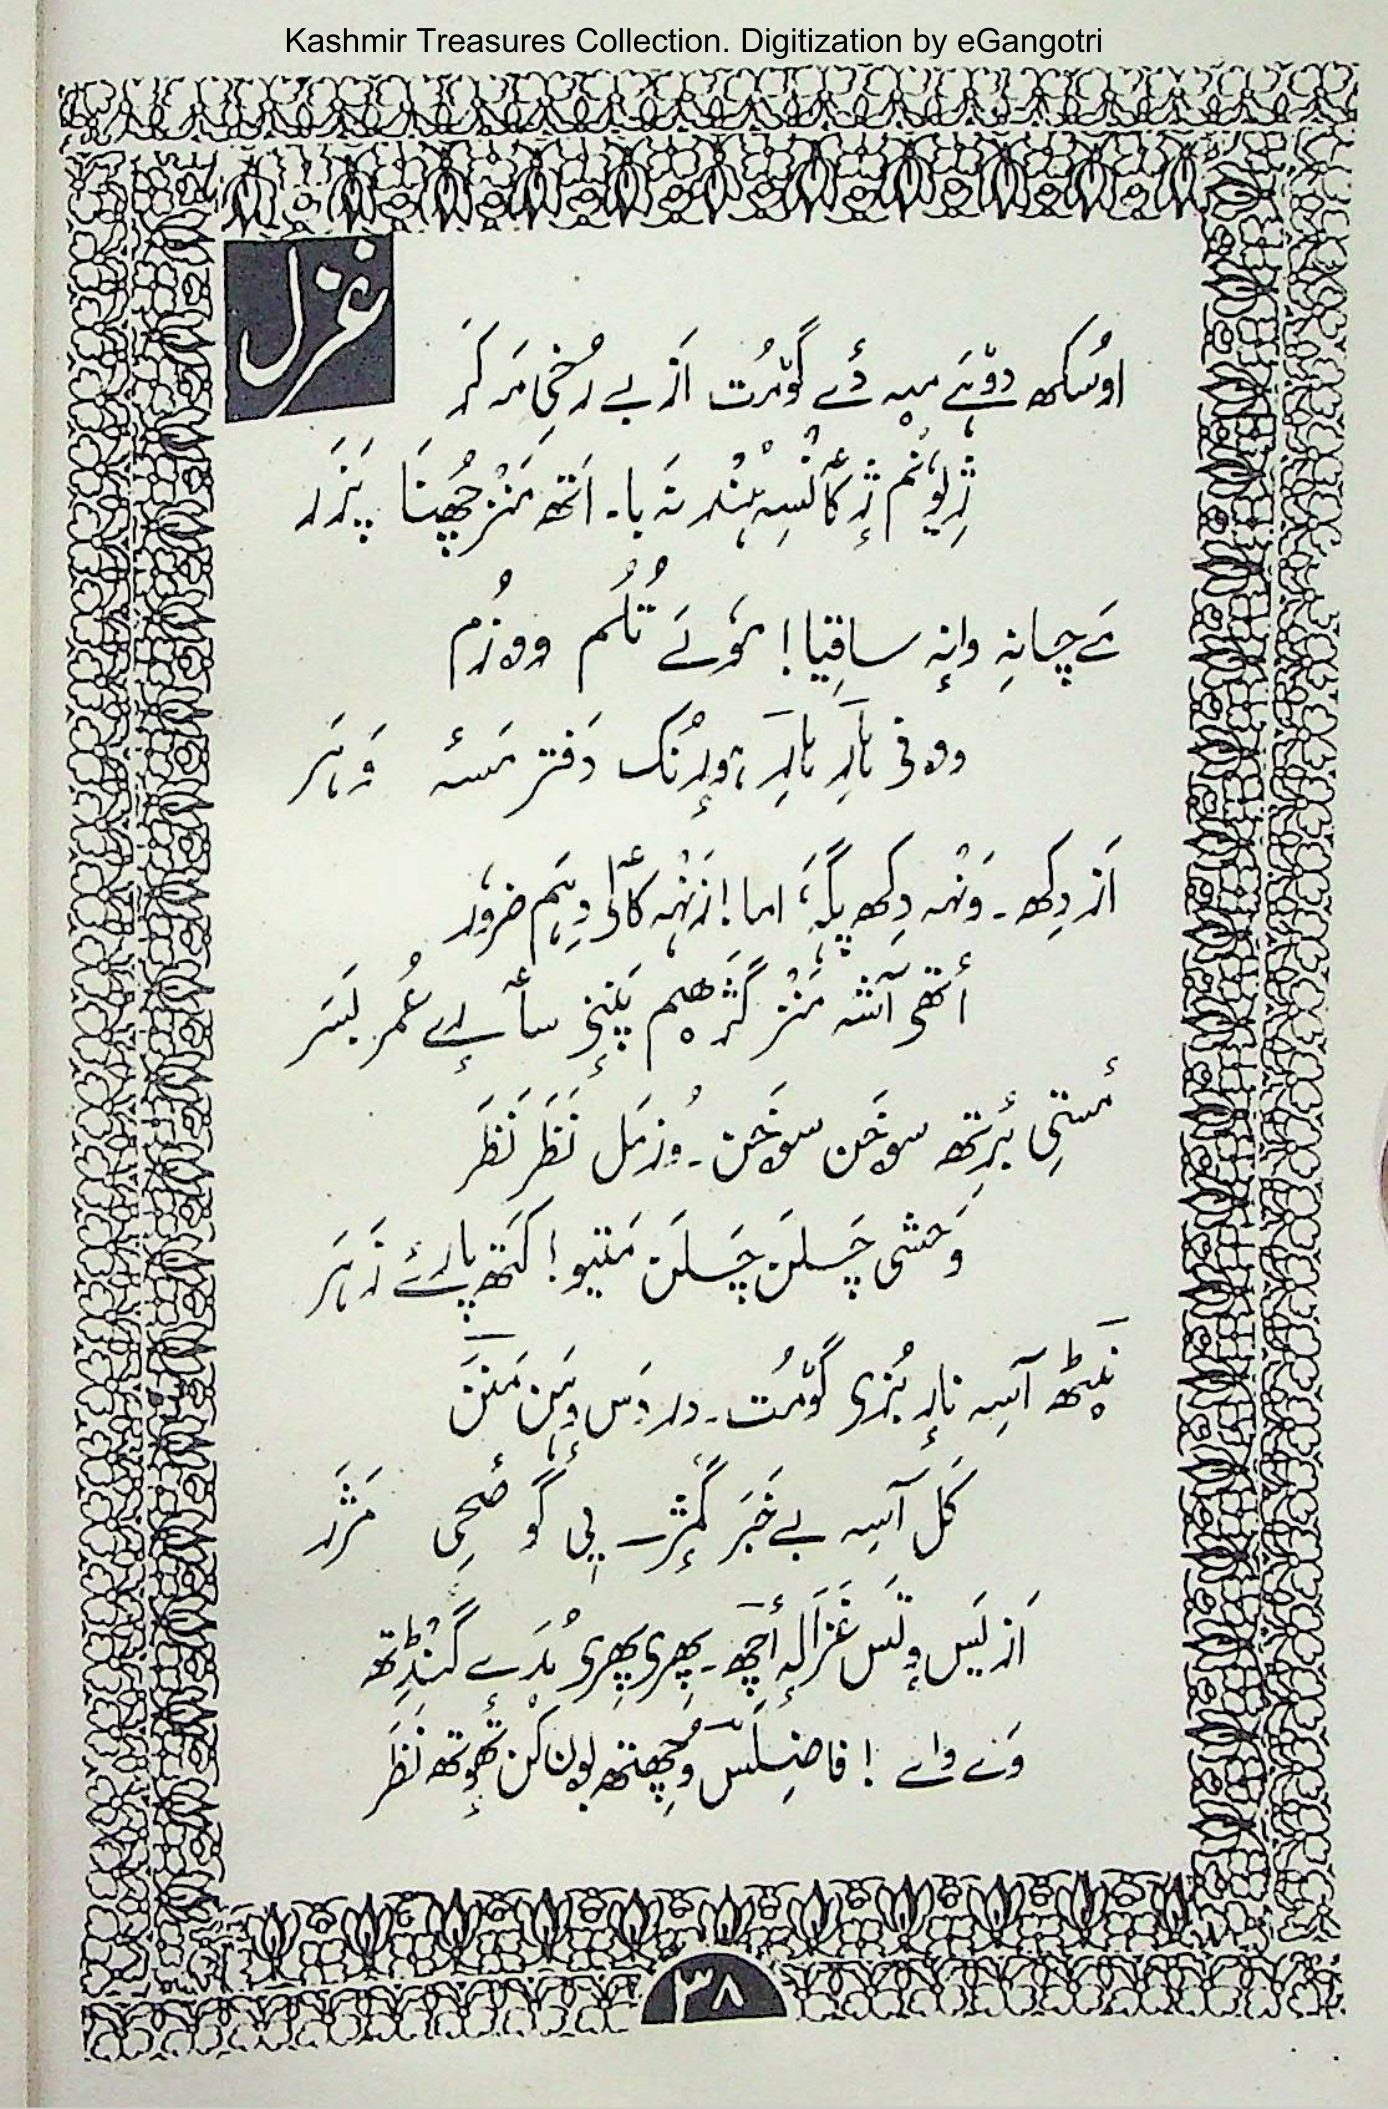 Kashmir Treasures Collection. Digitization by eGangotri
غزل
اوسُکھ دوٚہَے میہِ دٔے گوٚمُت اَز بے رُخی مَہ کَر
ژٕ یوٗنُم ژٕ کأنٛسِہ ہٕنٛد نَہ با۔ اَتھ مَنٛز چُھنَا پَزَر
مَے چانہِ وانہٕ ساقِیا! تُلُم ووزُم
وونی بارِ بارِ ہورٕنک دَفتر مَسۂ وَہَر
اَز دِکھ۔ وَنٛہہ دِکھ پگہَہ، اما! زَنٛہہ کٲلی دِہَم ضروٗر
أتھی آشہ مَنٛز گَژھیم پَننِی سٲرٕے عُمر بَسَر
مٔستی بٔرِتھ سوخَن سوخَن۔ وُزمَل نَظَر نَظَر
وَحشی چَلَن چَلَن مَتیو! کَتھ پارٔے زَہَر
نَیٹھ آسہِ نارٕ بُزی گوٚمُت۔ در دَس وَہَن مَنَن
کَل آسہِ بے خَبَر گٔمٕژ پی گَو صٔحی مَژَر
اَز یَس وٕتَس غَزالہٕ أچھَو۔ پھِری پھِری مُدَرٕے گَنٛڈِتھ
وَے واے! فاضِلَس وُچھِتھ یون کُن تھٔوِتھ نَظَر
۳۸